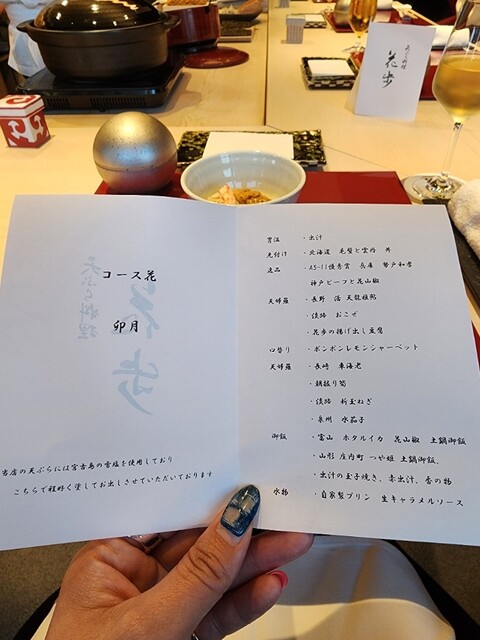 天ぷら料理
花歩
コース花
卯月
当店の天ぷらには宮古島の雪塩を使用しており
こちらで程好く塗してお出しさせていただいております
育温 ・出汁
先付け ・北海道 毛蟹と雲丹 丼
逸品 ・A5-11優秀賞 兵庫 勢戸和孝
神戸ビーフと花山椒
天婦羅 ・長野 活 天龍雅鮎
・淡路 おこぜ
・花歩の揚げ出し豆腐
口替り ・ポンポンレモンシャーベット
天婦羅 ・長崎 車海老
・朝掘り筍
・淡路 新玉ねぎ
・泉州 水茄子
御飯 ・富山 ホタルイカ 花山椒 土鍋御飯
・山形 庄内町 つや姫 土鍋御飯、
・出汁の玉子焼き、赤出汁、香の物
水物 ・自家製プリン 生キャラメルソース